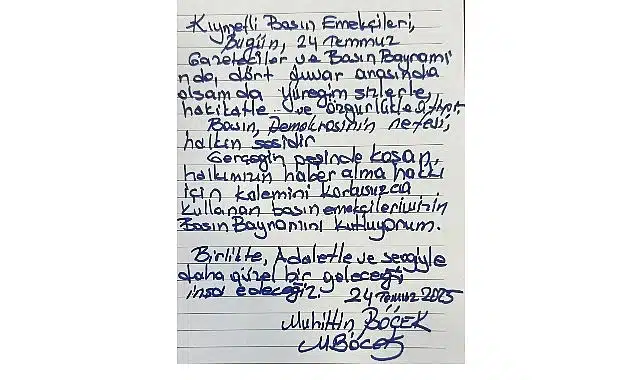 Kıymetli Basın Emekçileri,
Bugün, 24 Temmuz
Gazeteciler ve Basın Bayramı'
nda, dört duvar arasında
olsam da yüreğim sizlerle,
hakikatle ve özgürlükle atıyor.
Basın, Demokrasinin nefesi,
halkın sesidir
Gerçeğin peşinde koşan,
halkımızın haber alma hakkı
için kalemini korkusuzca
kullanan basın emekçilerimizin
Basın Bayramını kutluyorum.
Birlikte, Adaletle ve sevgiyle
daha güzel bir geleceği
inşa edeceğiz. 24 Temmuz 2025
Muhittin BÖCEK
MBöcek